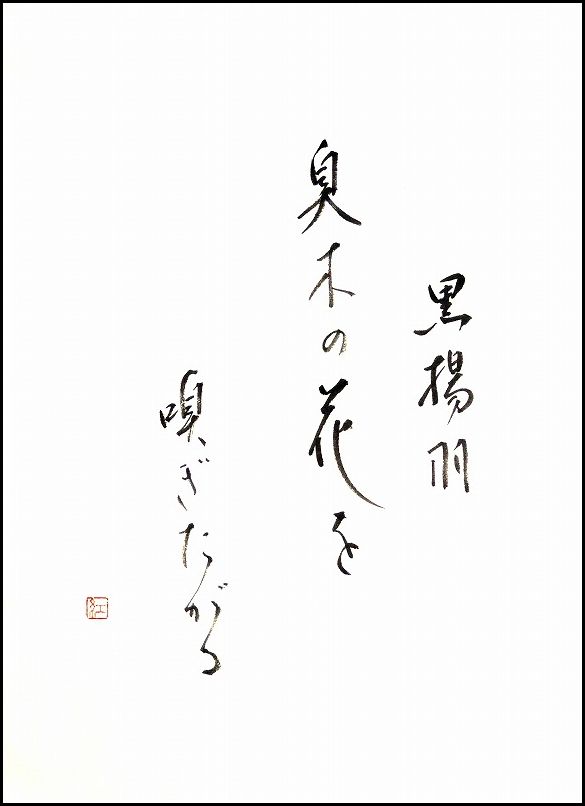 黒揚羽
臭木の花を
嗅ぎたがる
紅